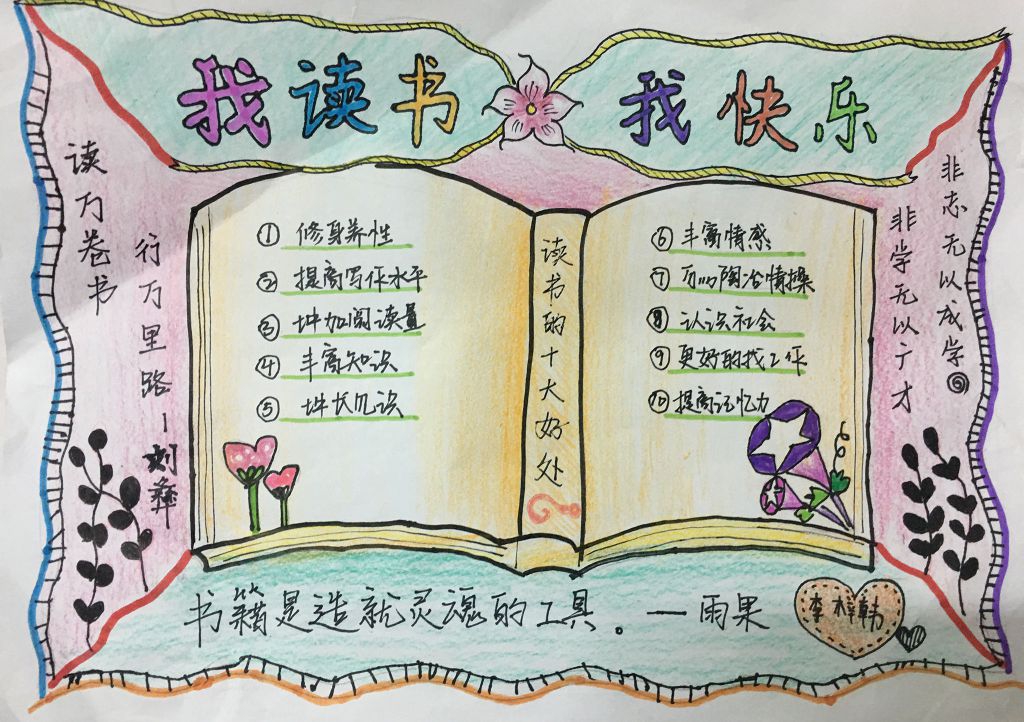 我读书
我快乐
读万卷书
行万里路一刘彝
非学无以广才
非志无以成学
读书的十大好处
① 修身养性
② 提高写作水平
③ 增加阅读量
④ 丰富知识
⑤ 增长见识
⑥ 丰富情感
⑦ 可以陶冶情操
⑧ 认识社会
⑨ 更好的找工作
⑩ 提高记忆力
书籍是造就灵魂的工具。一雨果
李梓韩